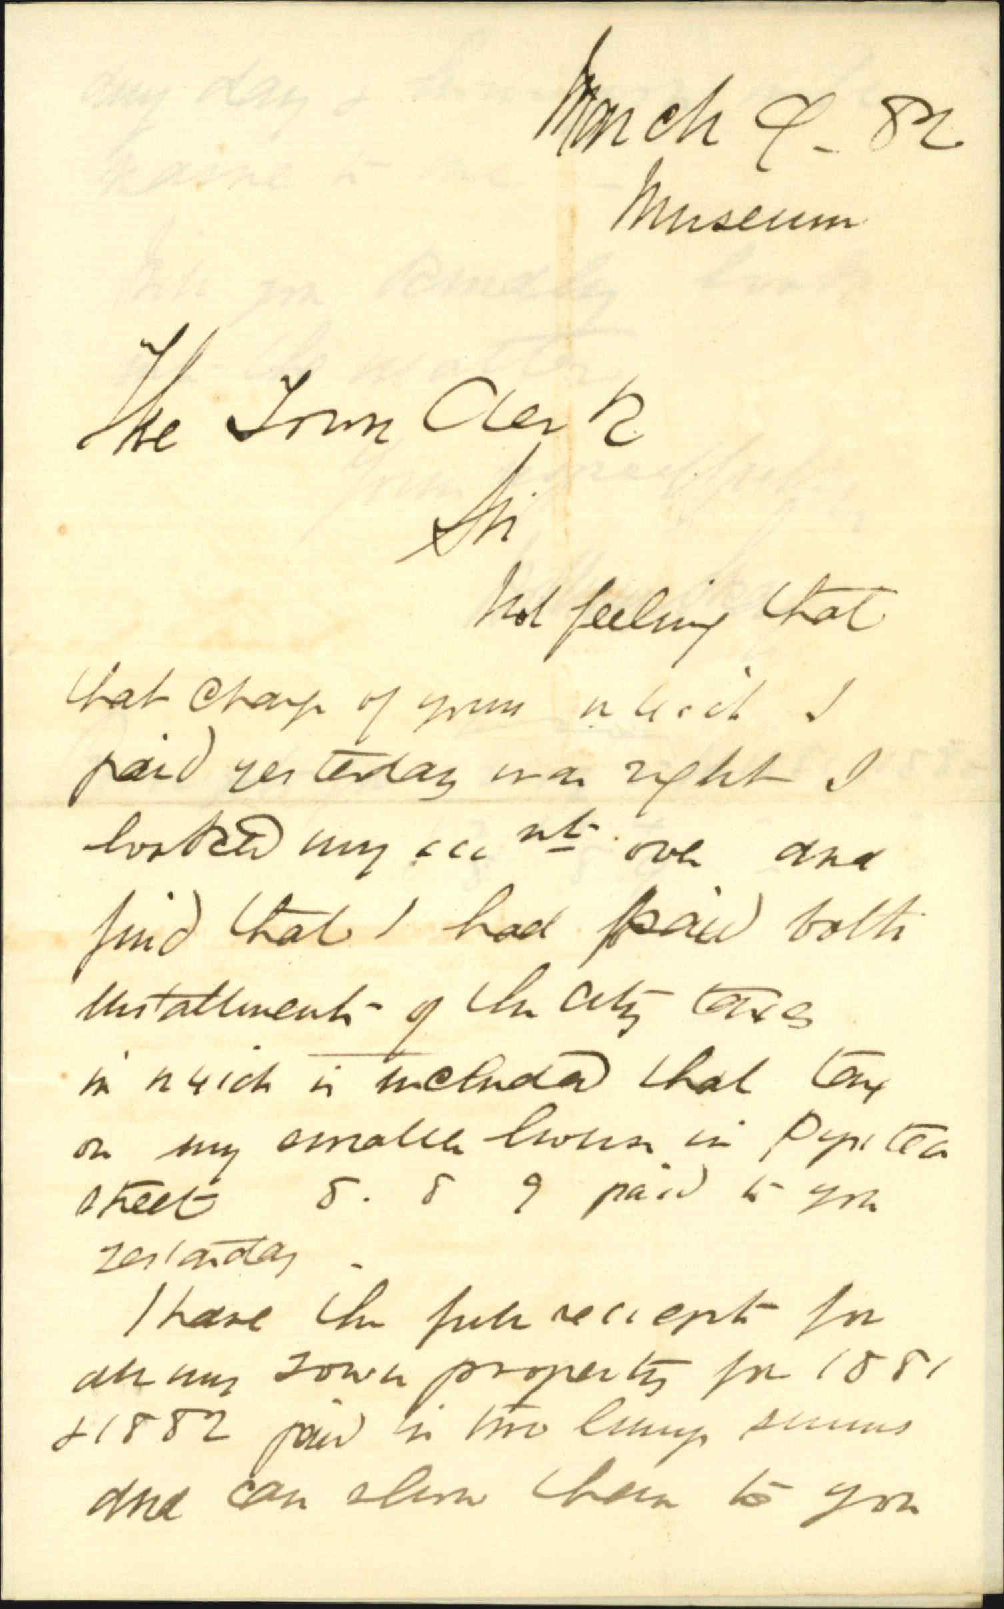 March 9_ 82
Museum
The Town Clerk
Sir
Not feeling that
that charge of yours which I
paid yesterday was right I
looked my accnts over and
find that I had paid both
installments of the City taxes
in which is included that tax
on my smaller house in Pipitea
street 8. 8 9 paid to you
yesterday.
I have the full reciepts for
all my Town property for 1881
& 1882 paid in two lump sums
and can show them to you